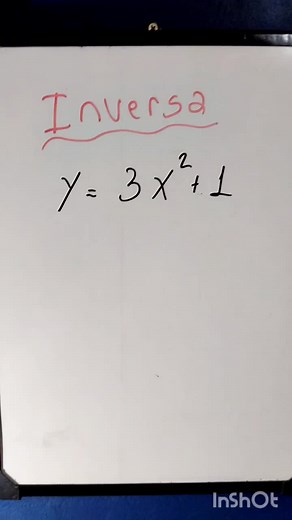 Inversa
y = 3x² + 1
InShOt